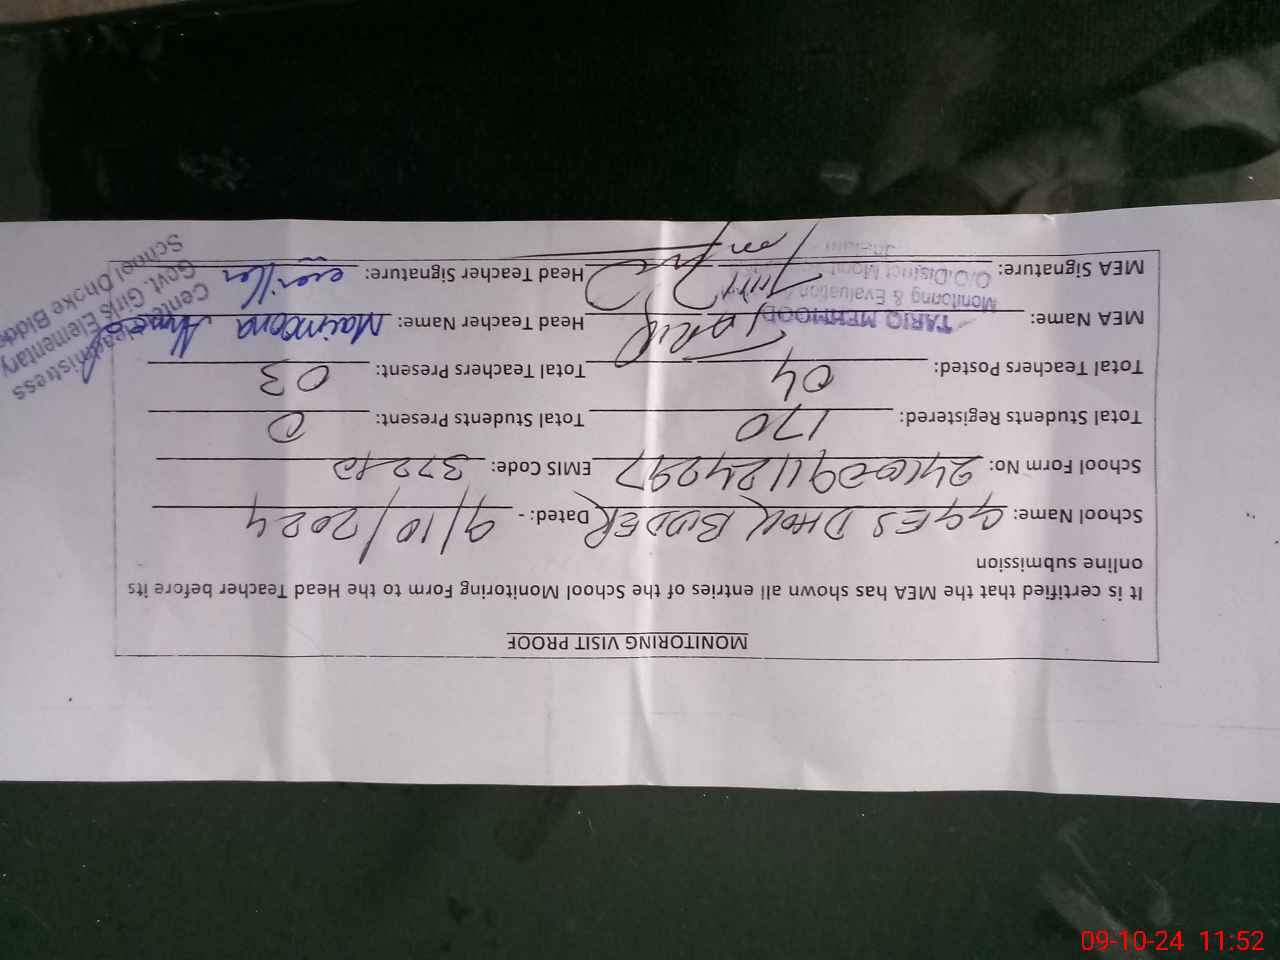 MONITORING VISIT PROOF
It is certified that the MEA has shown all entries of the School Monitoring Form to the Head Teacher before its
online submission
School Name: GGES DHOK BIDDER Dated: - 9/10/2024
School Form No: EMIS Code:
Total Students Registered: 170 Total Students Present: 0
Total Teachers Posted: 04 Total Teachers Present: 03
MEA Name: Tariq Head Teacher Name: Maimoona
MEA Signature: Head Teacher Signature:
TARIQ MEHMOOD
Monitoring & Evaluation
O/O District Monit
Headmistress
Govt. Girls Elementary
School Dhoke Bidde
09-10-24 11:52